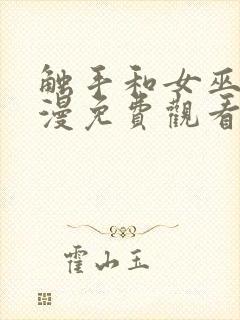 触手和女巫
漫免費觀看
霍山玉